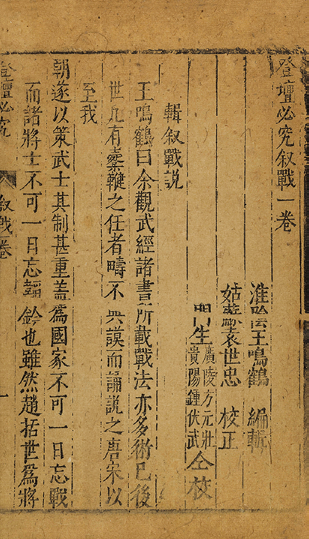 登壇必究叙戰一卷
淮陰王鳴鶴 編輯
姑蘇袁世忠 校正
門生 廣陵方元壯 貴陽鍾伏武 仝校
輯叙戰說
王鳴鶴曰余觀武經諸書所載戰法亦多術已後
世凡有櫜鞬之任者疇不典謨而誦說之唐宋以
至我
朝遂以策武士其制甚重盖為國家不可一日忘戰
而諸將士不可一日忘韜鈐也雖然趙括世爲將
登壇必究 叙戰卷 一